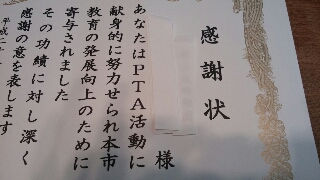 感謝状
様
あなたはPTA活動に
献身的に努力せられ本市
教育の発展向上のために
寄与されました
その功績に対し深く
感謝の意を表します
平成二